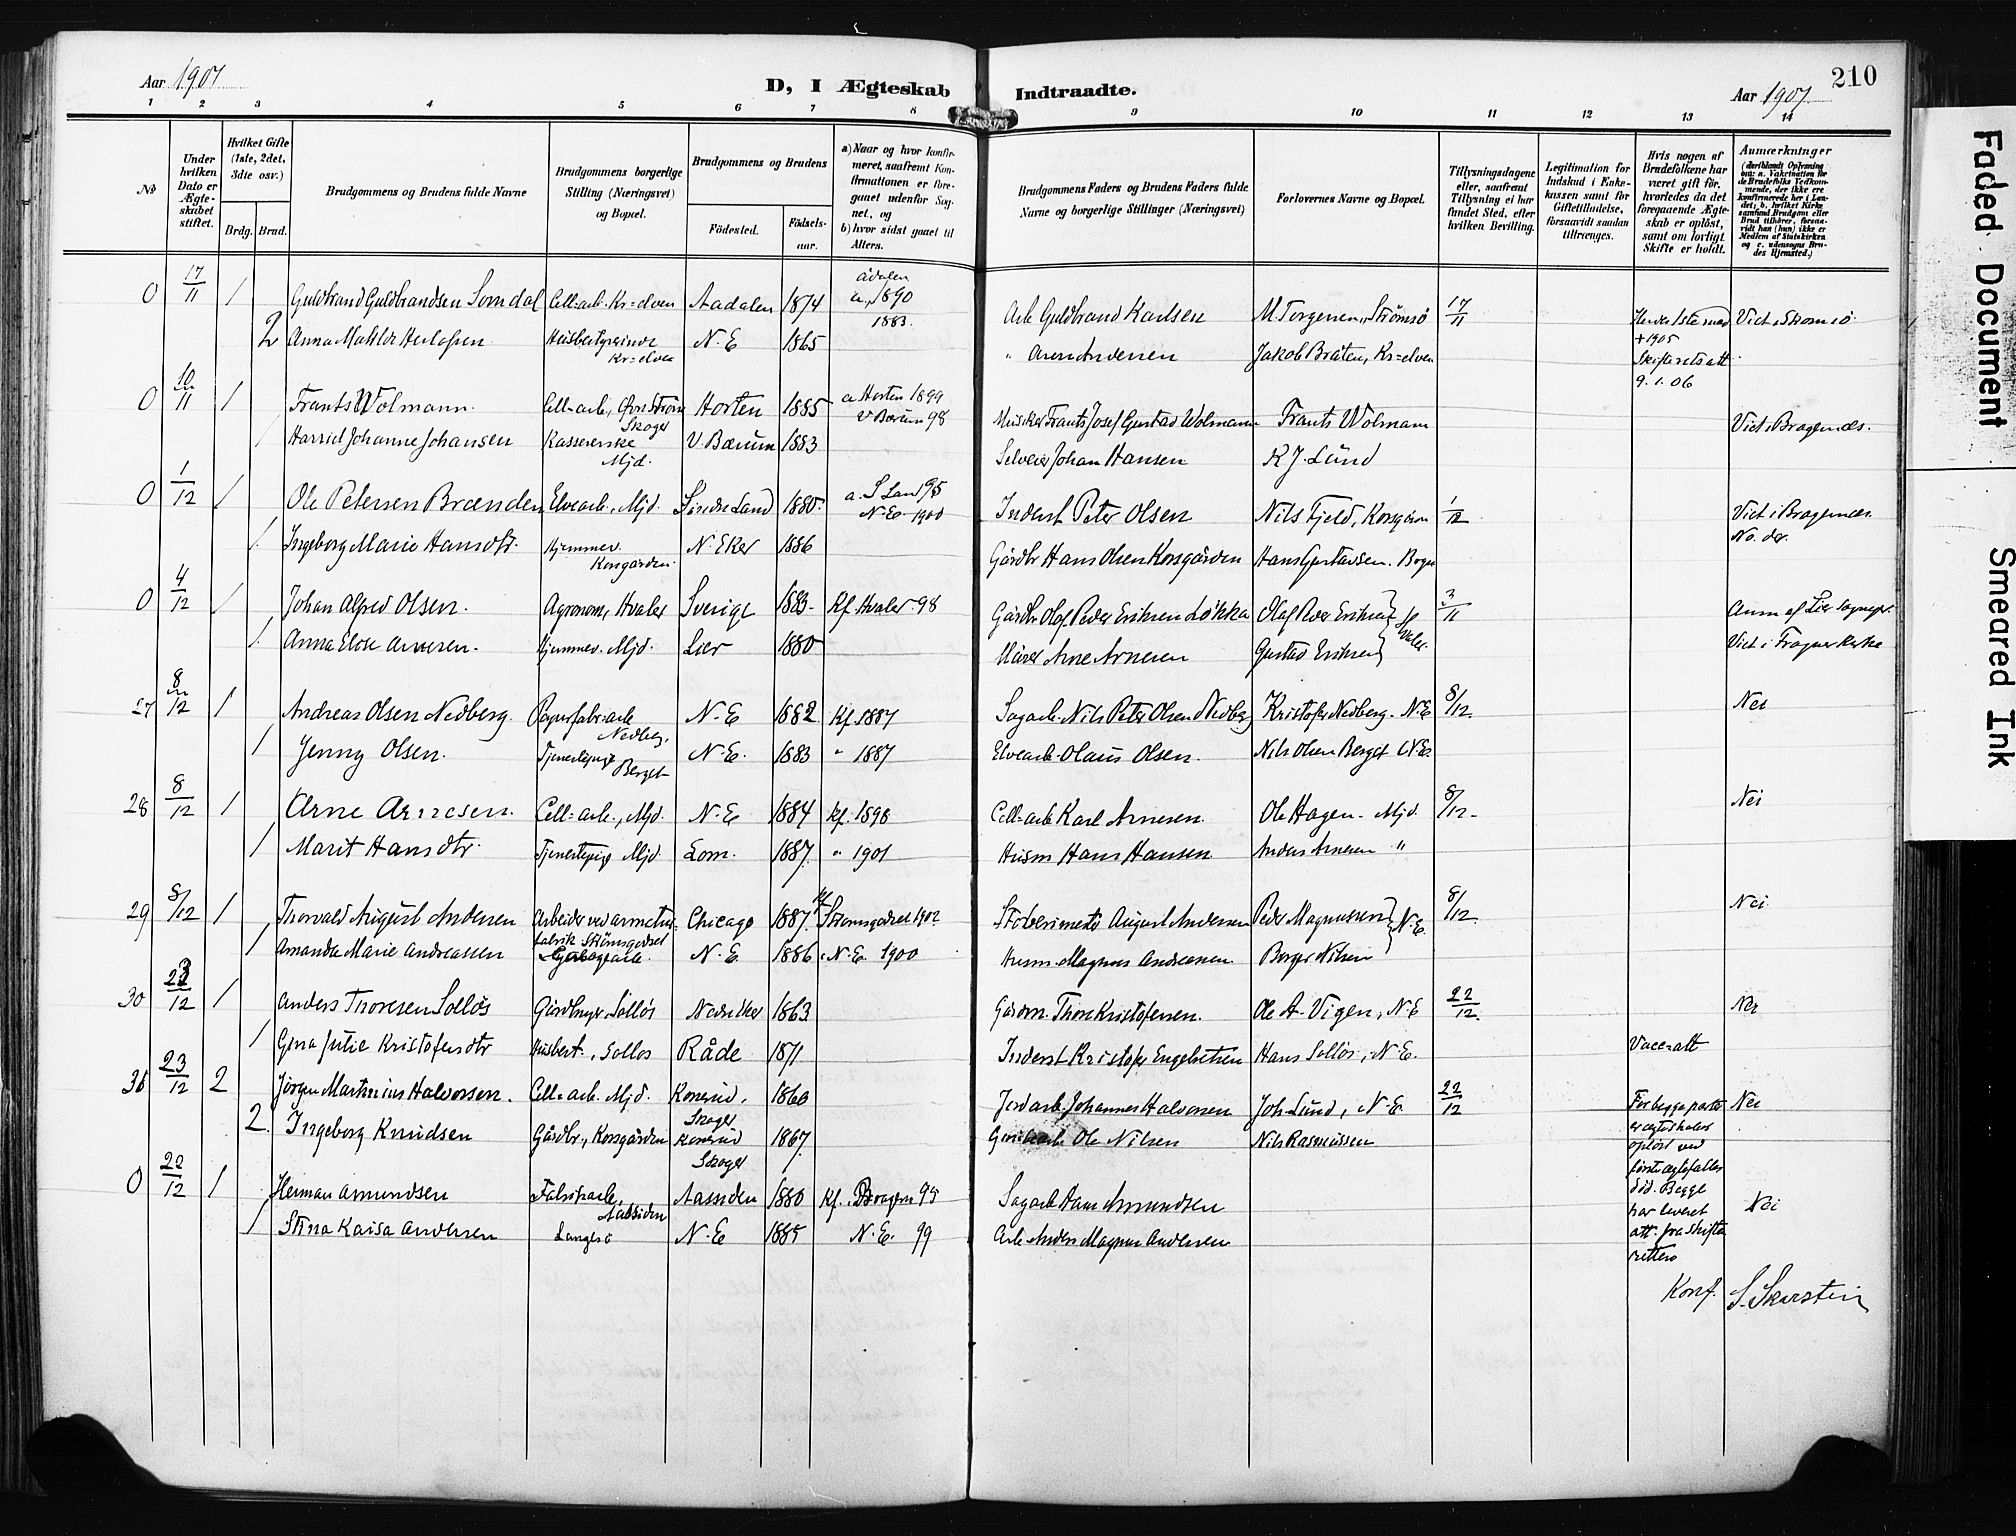 Aar 1907
D, I Ægteskab Indtraadte.
Aar 1907.
210
1 2 3 4 5 6 7 8 9 10 11 12 13 14
No
Under hvilken Dato er Ægteskabet stiftet.
Hvilket Gifte (1ste, 2det, 3die osv.)
Brdg. Brud.
Brudgommens og Brudens fulde Navne
Brudgommens borgerlige Stilling (Næringsvei) og Bopæl.
Brudgommens og Brudens
Fødested. Fødselsaar.
a) Naar og hvor konfirmeret, saafremt Konfirmationen er foregaaet udenfor Sognet, og
b) hvor sidst gaaet til Alters.
Brudgommens Faders og Brudens Faders fulde Navne og borgerlige Stillinger (Næringsvei)
Forlovernes Navne og Bopæl.
Tillysningsdagene eller, saafremt Tillysning ei har fundet Sted, efter hvilken Bevilling.
Legitimation for Indskud i Enkekassen samt for Giftetilladelse, forsaavidt saadan tiltrænges.
Hvis nogen af Brudefolkene har været gift før, hvorledes da det foregaaende Ægteskab er opløst, samt om lovligt Skifte er holdt.
Anmærkninger
0 17/11 1 Guldbrand Guldbrandsen Somdal Cell-arb. Kr=elven Aadalen 1874 Ådalen a, 1890 Arb Guldbrand Karlsen M Torgersen, Strømsø 17/11 Vict i Strømsø
2 Anna Mathilde Husbestyrerinde Kr=elven N.E 1865 1883. " Andersen Jakob Bråten, Kr=elven + 1905 9.1.06
0 10/11 1 Frants Wolmann. Cell=arb, Skoger Horten 1885 a Horten 1899 Musiker Frants Josef Gustav Wolmann Frants Wolmann Vict i Bragernæs.
1 Harriet Johanne Johansen Kassererske Mjd. V. Bærum 1883 V Bærum 98 Selveier Johan Hansen K J. Lund
0 1/12 1 Ole Petersen Brænden Elvearb., Mjd. Søndre Land 1880. a. S Land 95 N.E. 1900 Inderst Peter Olsen Nils Fjeld, Korsgården Vict i Bragernæs
1 Ingeborg Marie Hansdtr. Hjemmev. Korsgården. N. Eker 1886 Gårdbr Hans Olsen Korsgården Hans Gustavsen.
0 4/12 1 Johan Alfred Olsen. Agronom, Hvaler Sverige 1883- Kf Hvaler 98 Gårdbr Olof Peder Eriksen Løkka Olaf Peder Eriksen Hvaler. 3/11 Anm af Lier Sognepr.
1 Anna Arnesen. Hjemmev. Mjd. Lier 1880 Arne Arnesen Gustav Eriksen Vict i Frogner Kirke
27 8/12 1 Andreas Olsen Nedberg. Papirfabr=arb Nedberg. N-E 1882 Kf. 1887 Sagarb. Nils Peter Olsen Nedberg Kristofer Nedberg. N.E 8/12. Nei
1 Jenny Olsen. Tjenestepige Berget N.E. 1883 " 1887 Elvearb Olaus Olsen. Nils Olsen Berget N.E.
28 8/12 1 Arne Arnesen. Cell=arb., Mjd. N-E 1884 kf. 1898 Cell=arb Karl Arnesen. Ole Hagen. Mjd. 8/12- Nei
1 Marit Hansdtr. Tjenestepige Mjd. Lom. 1887. " 1901 Husm Hans Hansen. Anders Arnesen "
29 8/12 1 Thorvald August Andersen Arbeider ved armatur fabrik Strømsgodset Chicago 1887. Kf Strømsgodset 1902. Støberimester August Andersen Peder Magnussen N.E. 8/12 Nei
1 Amanda Marie Andreassen N.E. 1886 N.E. 1900 Husm. Magnus Andreassen Borger Nilsen
30 22/12 1 Anders Thoresen Solløs Gårdbruger, Solløs Nedre Eker 1863 Gårdm. Thore Kristofersen Ole A. Vigen, N.E 22/12. Nei
1 Gina Julie Kristofersdtr Husbest., Solløs Råde 1871 Inderst Kristofer Engebretsen Hans Solløs, N.E. Vacc=att
31 23/12 2 Jørgen Martinius Halvorsen. Cell=arb. Mjd. Konerud, Skoger 1860 Jordarb Johannes Halvorsen Joh. Lund, N.E. 22/12 For begge parter Nei
2. Ingeborg Knudsen Gårdbr., Korsgården Konerud Skoger 1867. Ole Nilsen Nils Rasmussen er ægteskabet opløst ved første ægtefælles død. Begge har leveret att. fra skifteretten
0 22/12 1 Herman Amundsen Fabrikarb. Aassiden Aassiden 1880 Kf. Bragern 95 Sagarb Hans Amundsen Nei
1 Stina Kaisa Andersen Langesø N-E 1885 N.E. 99 Arb. Anders Magnus Andersen
Konf. S. Skarstein
Faded Document
Smeared Ink